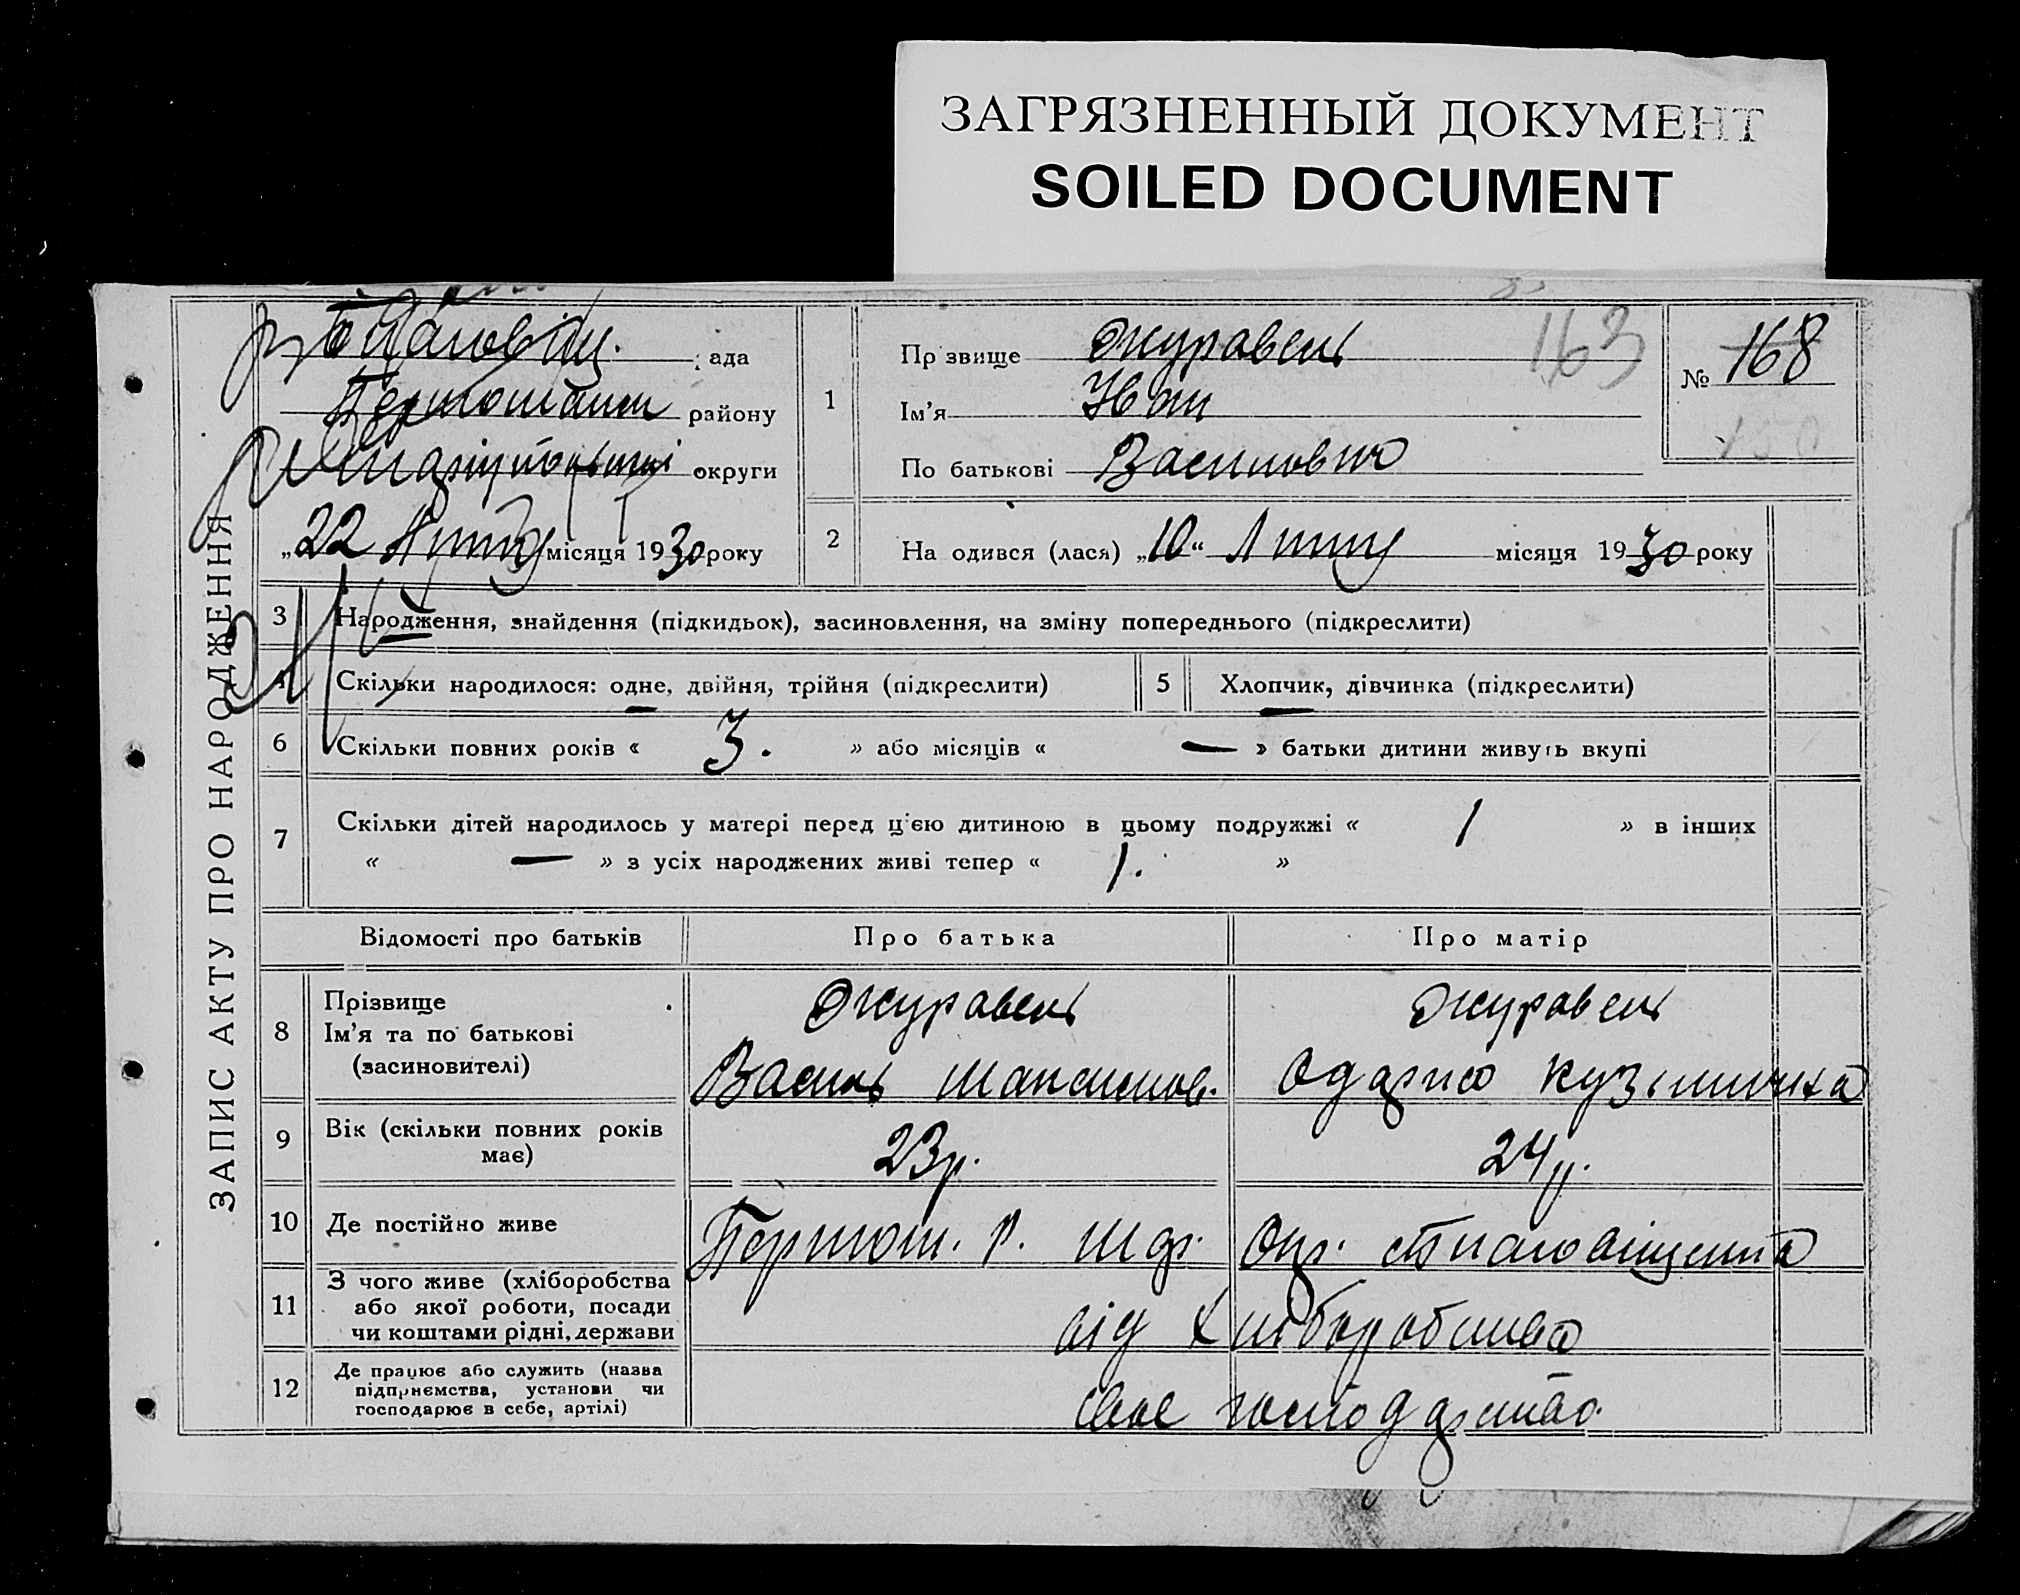 ЗАГРЯЗНЕННЫЙ ДОКУМЕНТ
SOILED DOCUMENT
ЗАПИС АКТУ ПРО НАРОДЖЕННЯ
ада
району
округи
„22 місяця 1930 року
1
Пр звище Журавель
Ім’я Іван
По батькові Василович
163
№ 168
150
2
На одився (лася) „10“ Липня місяця 1930 року
3 Народження, знайдення (підкидьок), засиновлення, на зміну попереднього (підкреслити)
4 Скільки народилося: одне, двійня, трійня (підкреслити)
5 Хлопчик, дівчинка (підкреслити)
6 Скільки повних років « 3. » або місяців « — » батьки дитини живуть вкупі
7 Скільки дітей народилось у матері перед ц'єю дитиною в цьому подружжі « 1 » в інших
« — » з усіх народжених живі тепер « 1. »
Відомості про батьків Про батька Про матір
8 Прізвище Журавель Журавель
Ім’я та по батькові
(засиновителі) Василь Максимов. Одарка Кузьминична
9 Вік (скільки повних років
має) 23р. 24р.
10 Де постійно живе р. Окр.
11 З чого живе (хліборобства
або якої роботи, посади
чи коштами рідні, держави
від хліборобства
12 Де працює або служить (назва
підприємства, установи чи
господарює в себе, артілі)
своє господарство.